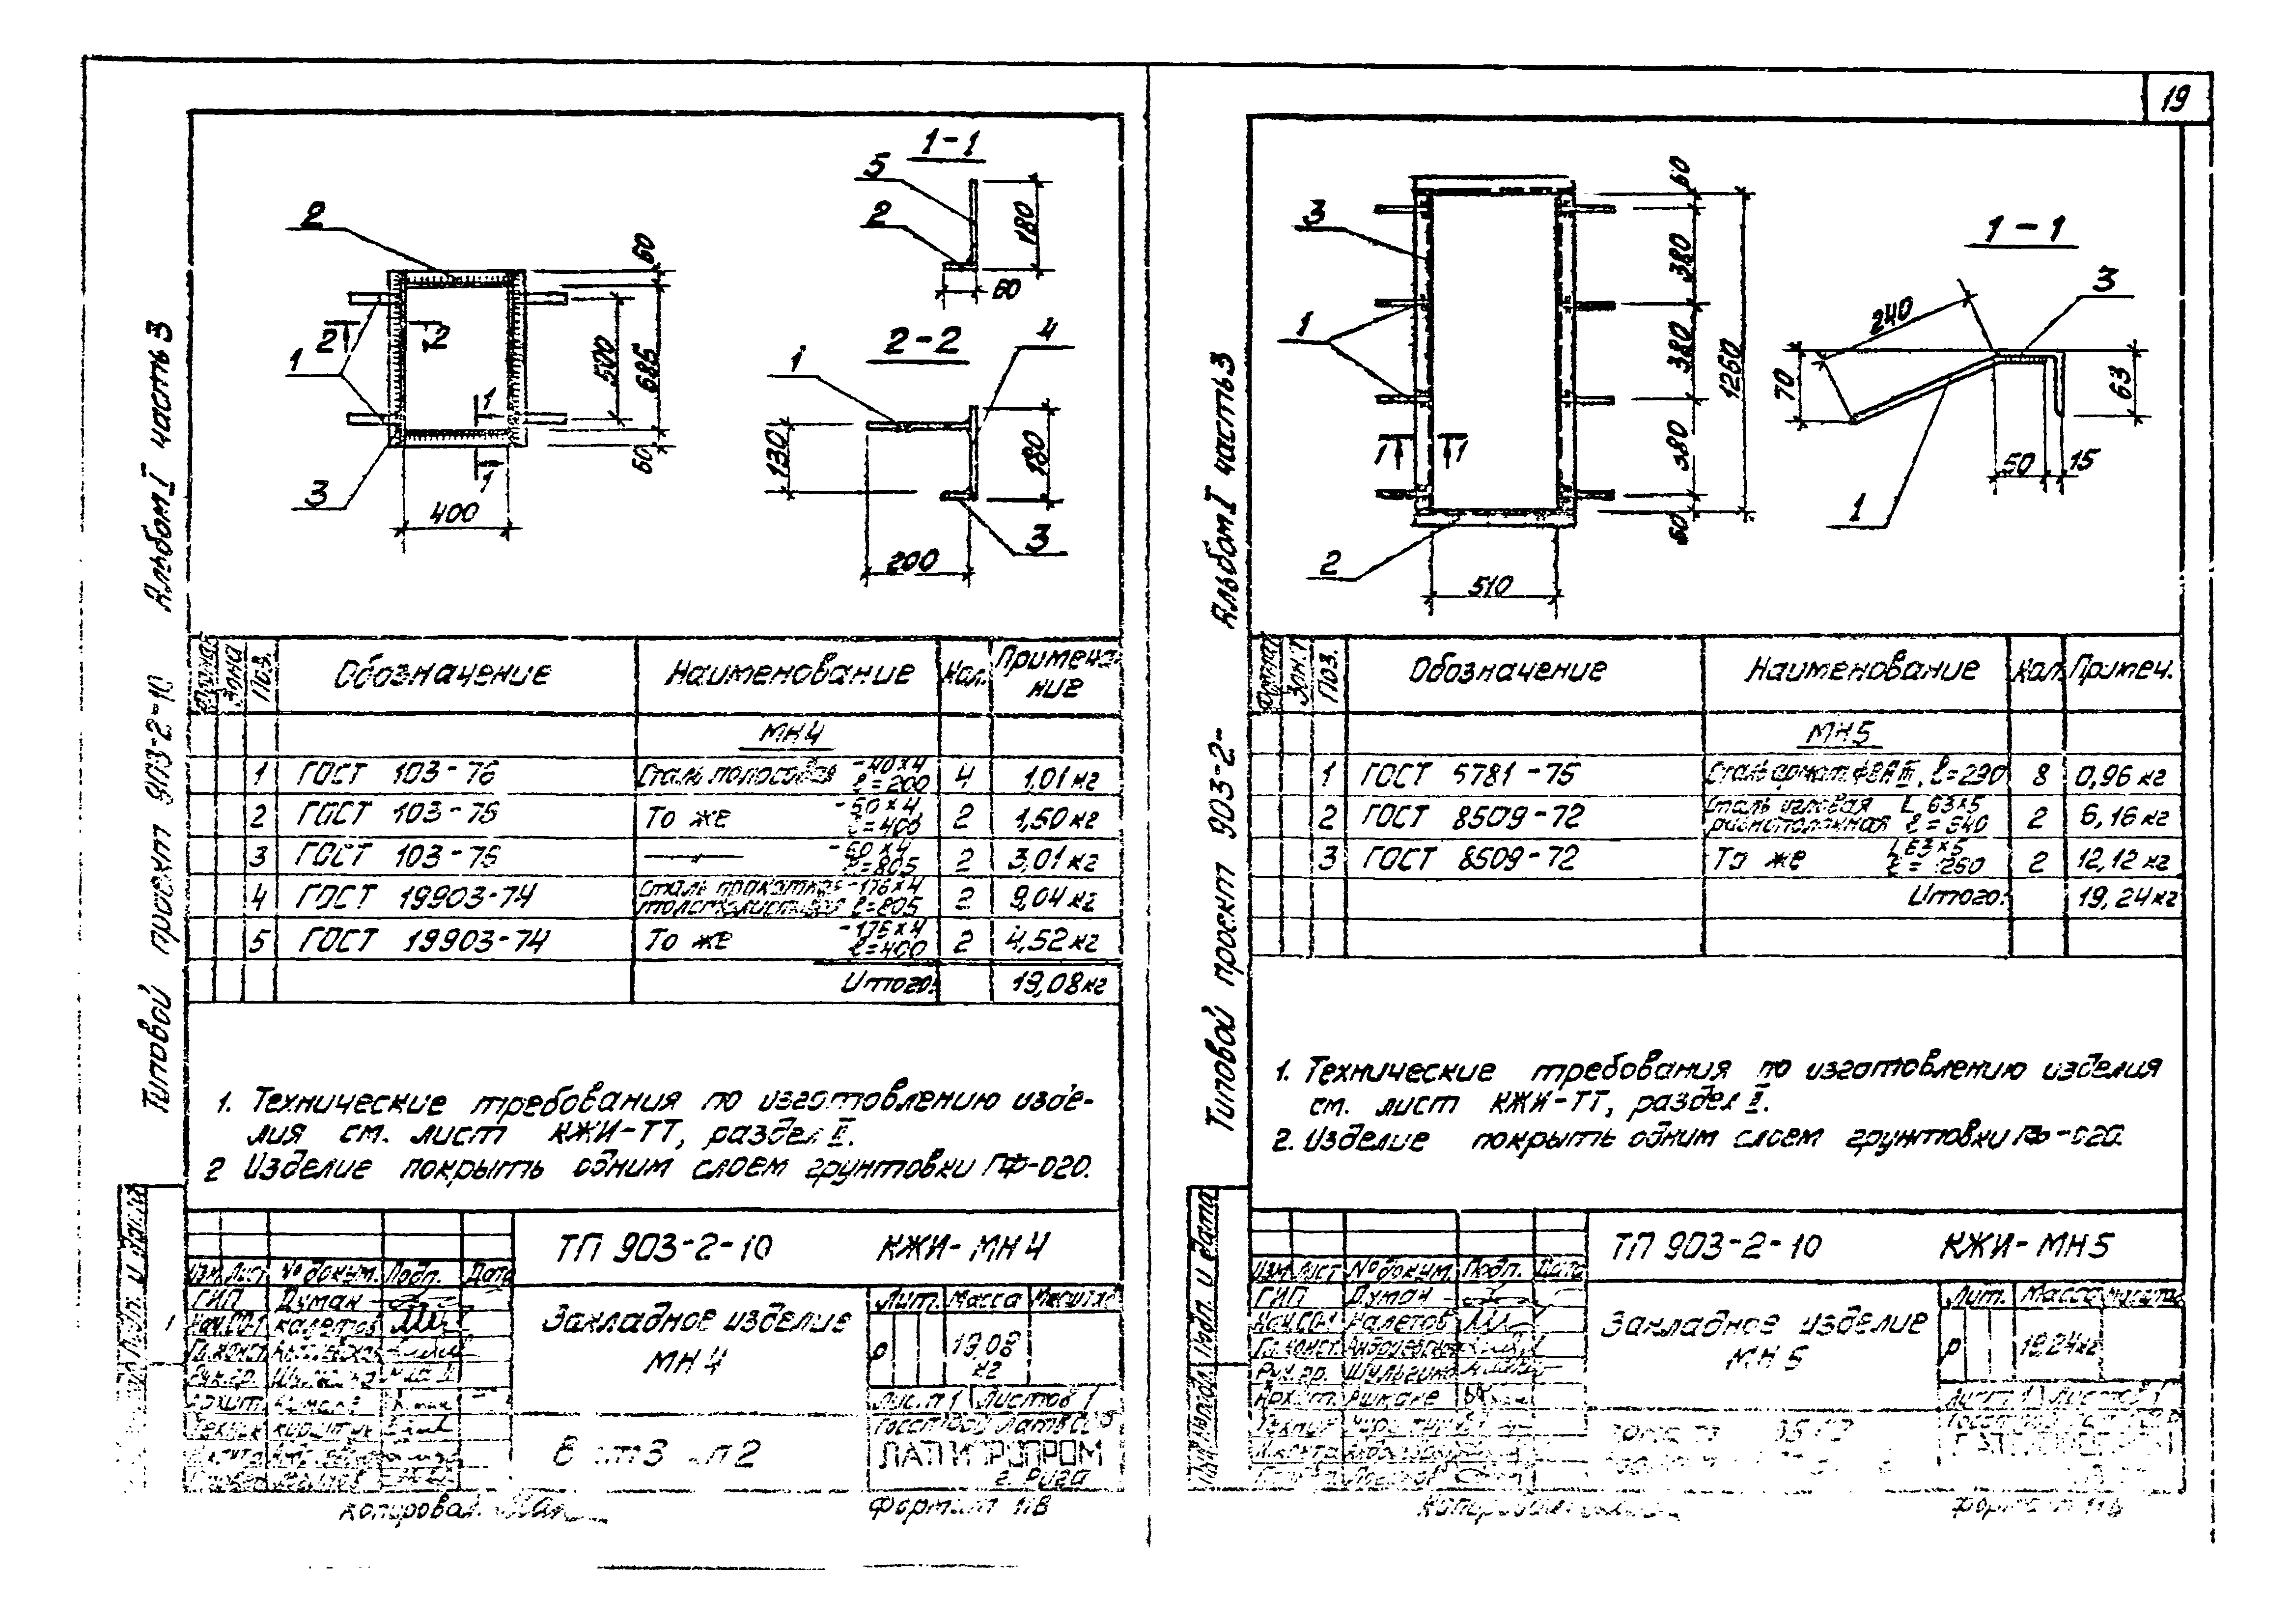 19
Типовой проект 903-2-10 Альбом I часть 3
2
1
3
2
2
1
1
60
500
685
60
400
1-1
5
2
180
60
2-2
1
4
130
180
3
200
Зона
Поз.
Обозначение
Наименование
Кол.
Примеча-
ние
МН4
1 ГОСТ 103-76 Сталь полосовая -40×4 ℓ=200 4 1,01 кг
2 ГОСТ 103-76 То же ℓ=400 2 1,50 кг
3 ГОСТ 103-76 —〃— -60×4 ℓ=805 2 3,01 кг
4 ГОСТ 19903-74 Сталь прокатная толстолистовая -176×4 ℓ=805 2 9,04 кг
5 ГОСТ 19903-74 То же -176×4 ℓ=400 2 4,52 кг
Итого: 19,08 кг
1. Технические требования по изготовлению изде-
лия см. лист КЖИ-ТТ, раздел II.
2 Изделие покрыть одним слоем грунтовки ГФ-020.
Подп. и дата
ТП 903-2-10 КЖИ-МН4
Изм. Лист № докум. Подп. Дата
ГИП Думан
Закладное изделие
МН4
Лит. Масса Масштаб
Р 19,08
кг
Лист 1 Листов 1
Госстрой Латв. ССР
ЛАТГИПРОПРОМ
г. Рига
Копировал:
Формат 11В
Типовой проект 903-2- Альбом I часть 3
3
1
1
1
2
60
380
380
380
60
1260
510
1-1
240
3
70
63
50
15
1
Поз.
Обозначение
Наименование
Кол.
Примеч.
МН5
1 ГОСТ 5781-75 Сталь армат. ф8АIII, ℓ=290 8 0,96 кг
2 ГОСТ 8509-72 Сталь угловая равнополочная L 63×5 ℓ=640 2 6,16 кг
3 ГОСТ 8509-72 То же L 63×5 ℓ=1260 2 12,12 кг
Итого: 19,24 кг
1. Технические требования по изготовлению изделия
см. лист КЖИ-ТТ, раздел II.
2. Изделие покрыть одним слоем грунтовки ГФ-020.
Подп. и дата
ТП 903-2-10 КЖИ-МН5
Изм. Лист № докум. Подп. Дата
ГИП Думан
Закладное изделие
МН5
Лит. Масса
Р 19,24 кг
Лист 1 Листов 1
Копировал:
Формат 11В